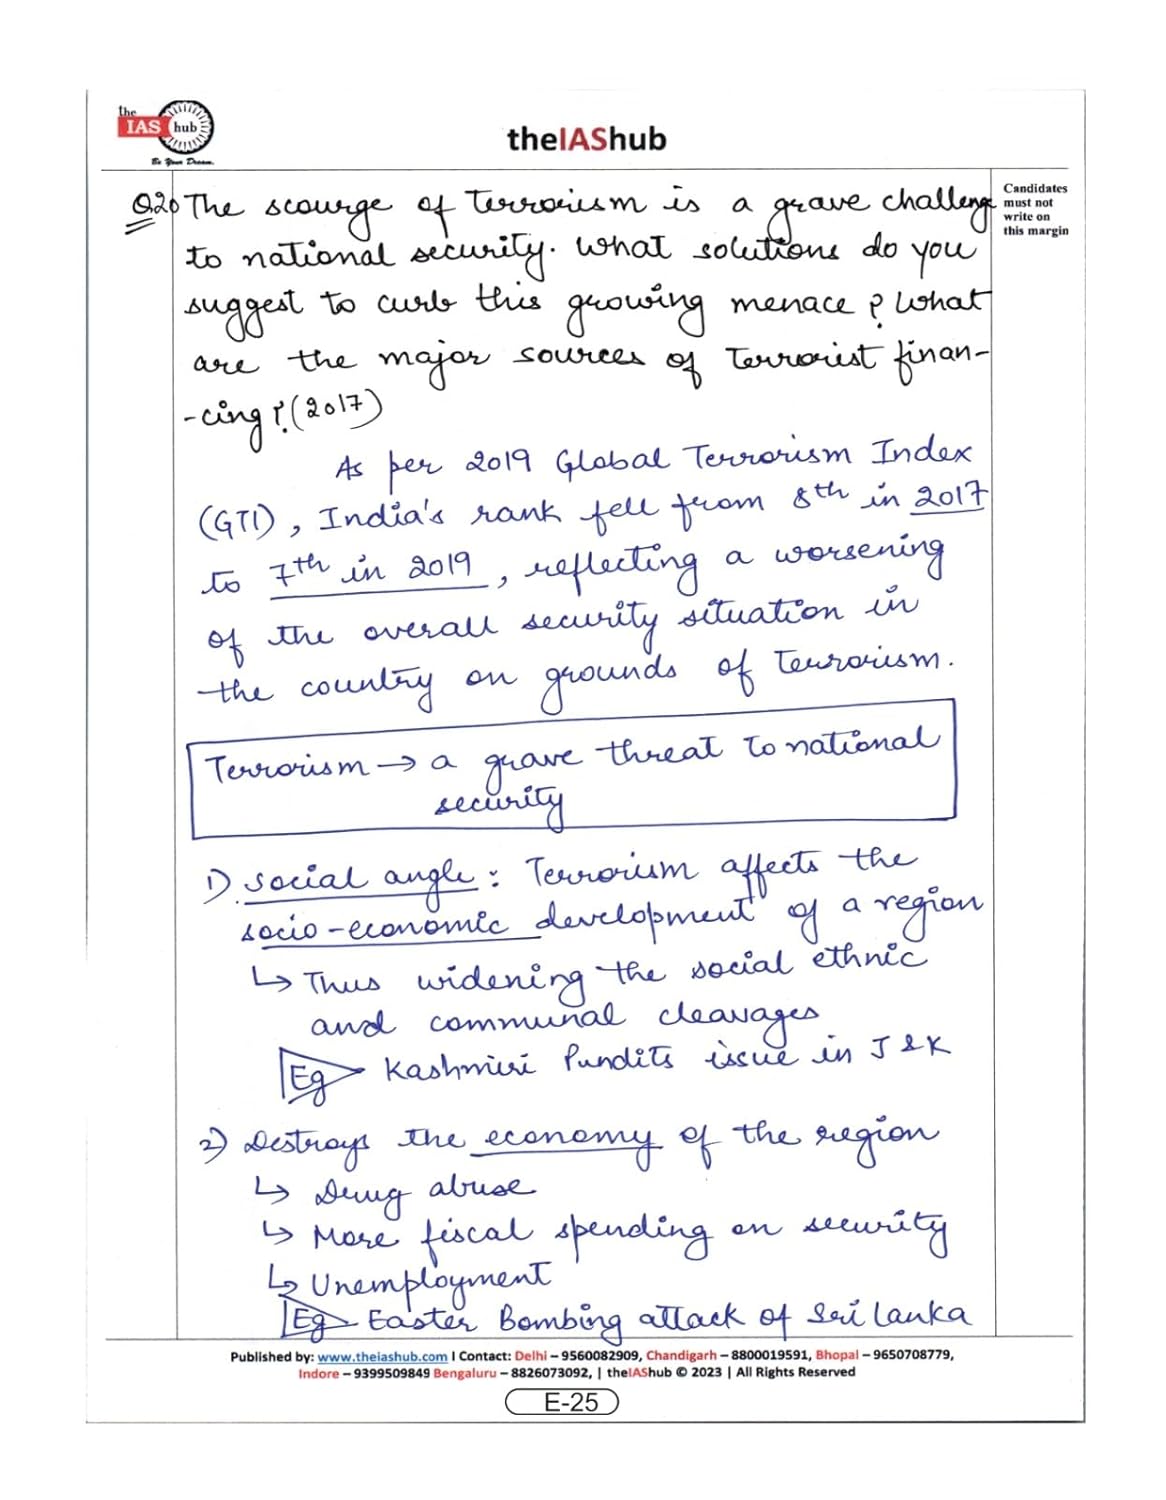 the
IAS hub
Be Your Dream.
theIAShub
Candidates
must not
write on
this margin
Q20 The scourge of terrorism is a grave challenge
to national security. What solutions do you
suggest to curb this growing menace? What
are the major sources of terrorist finan-
-cing? (2017)
As per 2019 Global Terrorism Index
(GTI), India's rank fell from 8th in 2017
to 7th in 2019, reflecting a worsening
of the overall security situation in
the country on grounds of terrorism.
Terrorism → a grave threat to national
security
1) social angle: Terrorism affects the
socio-economic development of a region
↳ Thus widening the social ethnic
and communal cleavages
Eg Kashmiri Pundits issue in J&K
2) Destroys the economy of the region
↳ Drug abuse
↳ More fiscal spending on security
↳ Unemployment
Eg Easter Bombing attack of Sri Lanka
Published by: www.theiashub.com I Contact: Delhi – 9560082909, Chandigarh – 8800019591, Bhopal – 9650708779,
Indore – 9399509849 Bengaluru – 8826073092, | theIAShub © 2023 | All Rights Reserved
E-25